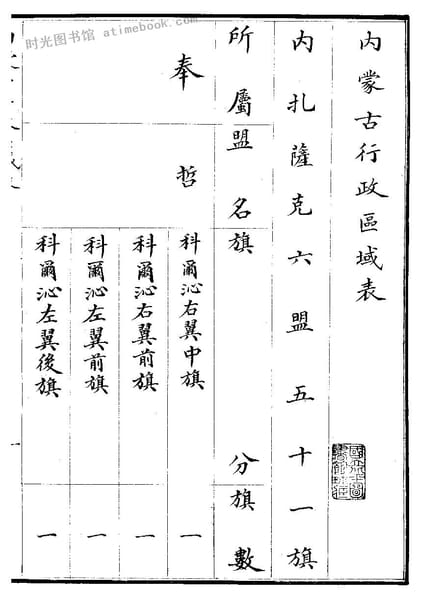 时光图书馆 atimebook.com
內蒙古行政區域表
內扎薩克六盟五十一旗
所屬盟名旗分旗數
奉哲科爾沁右翼中旗一
科爾沁右翼前旗一
科爾沁左翼前旗一
科爾沁左翼後旗一
一